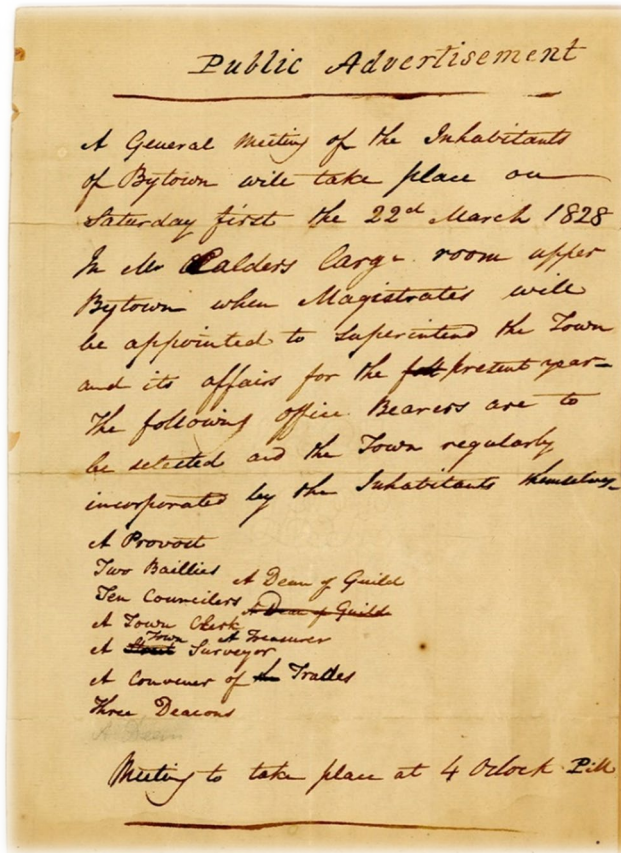 Public Advertisement
A General Meeting of the Inhabitants
of Bytown will take place on
Saturday first the 22d March 1828
In Mr Calders large room upper
Bytown when Magistrates will
be appointed to superintend the Town
and its affairs for the present year
The following office Bearers are to
be selected and the Town regularly
incorporated by the Inhabitants themselves
A Provost
Two Baillies A Dean of Guild
Ten Councilers A Dean of Guild
A Town Clerk A Treasurer
A Street Town Surveyor
A Convener of the Trades
Three Deacons
A Dean
Meeting to take place at 4 Oclock P.M